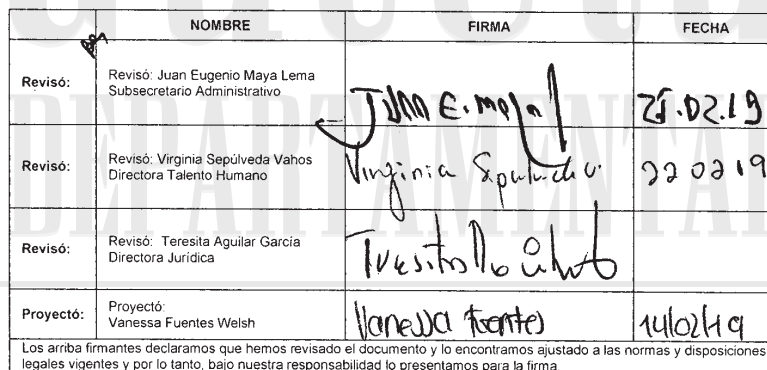 NOMBRE FIRMA FECHA
Revisó: Revisó: Juan Eugenio Maya Lema
Subsecretario Administrativo
Juan E. Maya
.02.19
Revisó: Revisó: Virginia Sepúlveda Vahos
Directora Talento Humano
Virginia Sepulveda V.
220219
Revisó: Revisó: Teresita Aguilar García
Directora Jurídica
Proyectó: Proyectó:
Vanessa Fuentes Welsh
Vanessa Fuentes
14/02/19
Los arriba firmantes declaramos que hemos revisado el documento y lo encontramos ajustado a las normas y disposiciones
legales vigentes y por lo tanto, bajo nuestra responsabilidad lo presentamos para la firma.
DEPARTAMENTAL